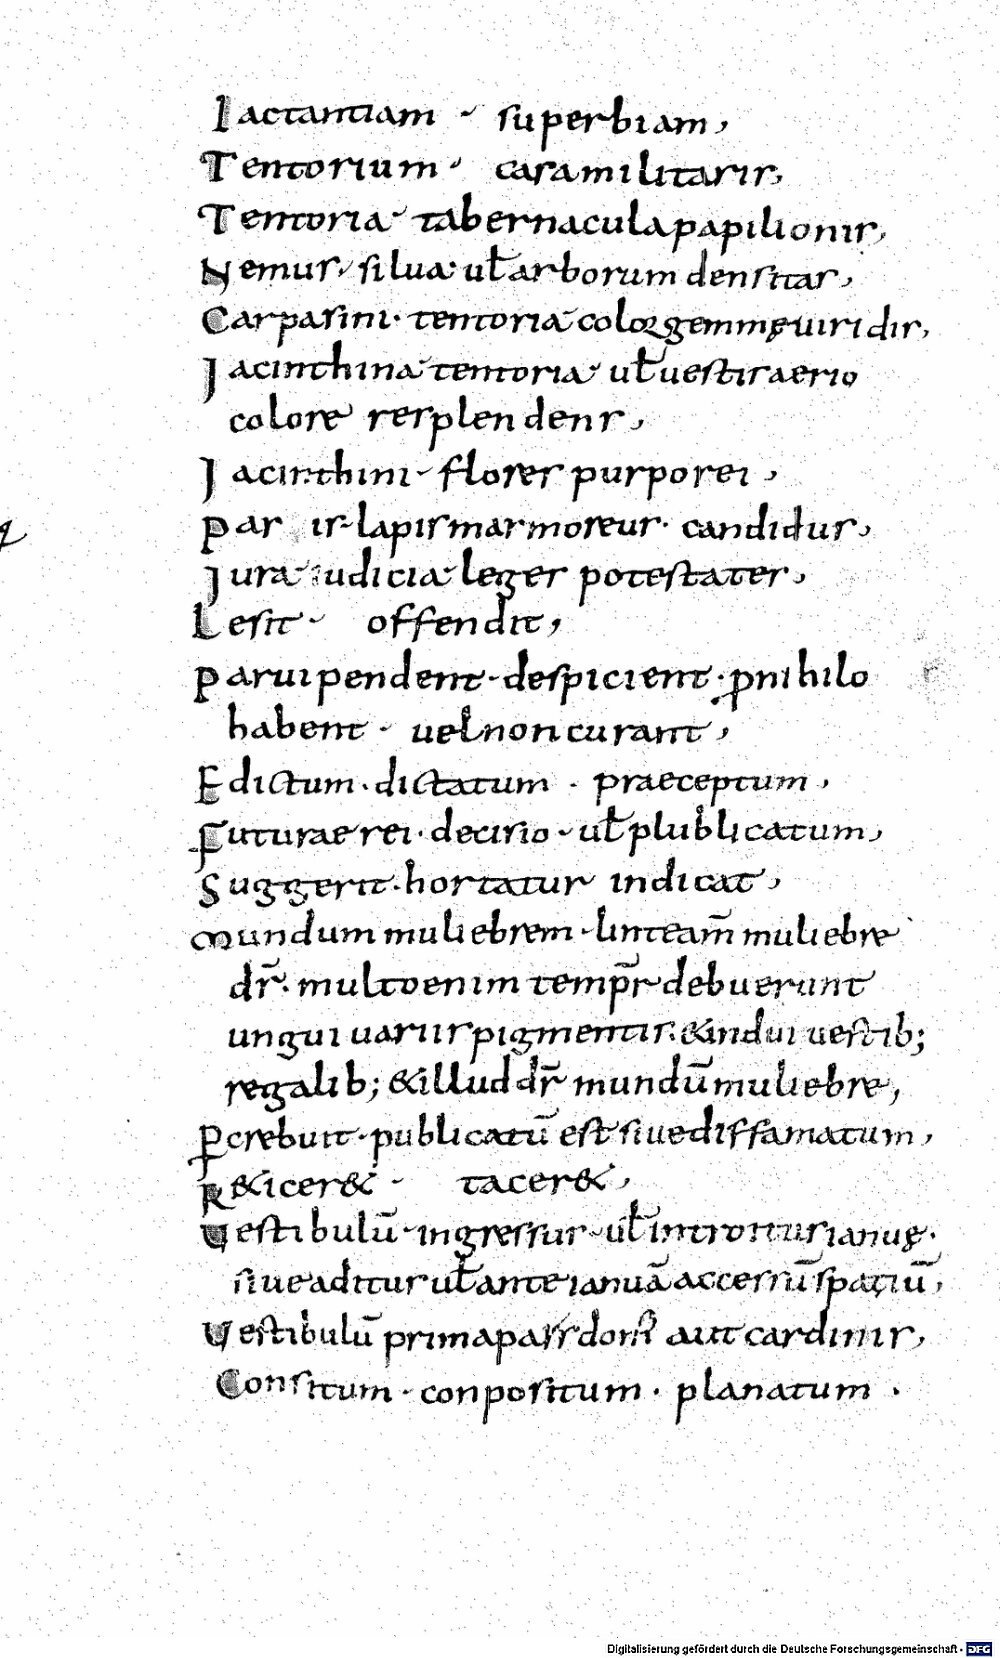 Iactantiam · superbiam,
Tentorium · casa militaris,
Tentoria · tabernacula papilionis,
Nemus, silua · ul̄ arborum densitas,
Carpasini · tentoria coloris gemmę uiridis,
Iacinthina · tentoria · ul̄ uestis aerio
colore resplendens,
Iacinthini · flores purporei,
Par is · lapis marmoreus · candidus,
Iura iudicia · leges potestates,
Lesit · offendit,
Paruipendent · despicient · ꝓnihilo
habent · uel non curant,
Edictum · dictatum · praeceptum,
Futurae rei · decisio · ul̄ plublicatum,
Suggerit · hortatur indicat,
Mundum muliebrem · linteam̄ muliebre
dr̄ · multo enim temp̄r debuerunt
ungui uariis pigmentis · & indui uestib;
regalib; & illud dr̄ mundū muliebre,
Ꝑcrebuit · publicatū est siue diffamatum,
R&icer& · tacer&,
Uestibulū · ingressus · ul̄ introitus ianuę ·
siue aditus ul̄ ante ianuā accessū spatiū,
Uestibulū prima pars dom̄ aut cardinis,
Consitum · conpositum · planatum ·
Digitalisierung gefördert durch die Deutsche Forschungsgemeinschaft - DFG